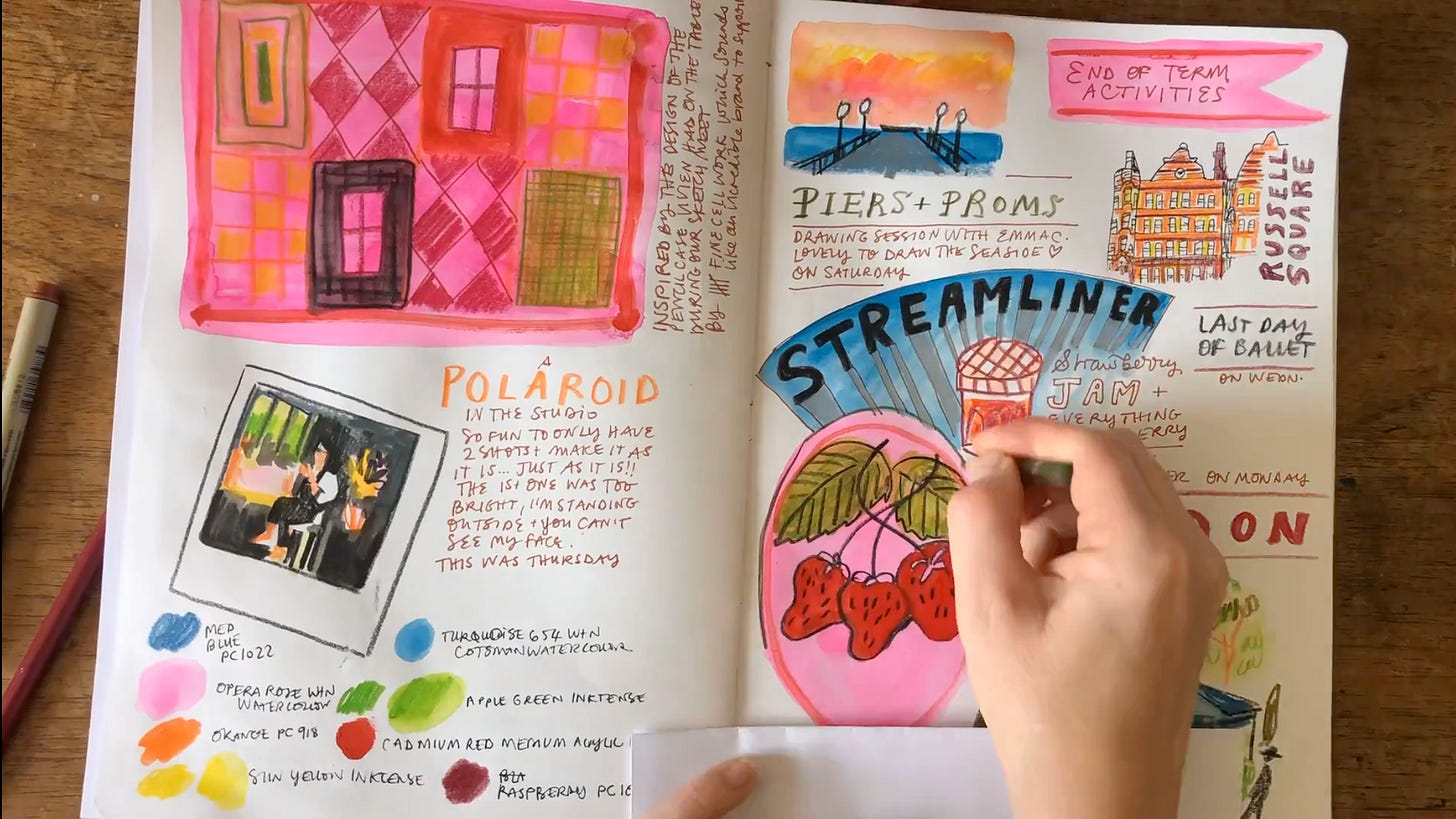 INSPIRED BY THE DESIGN OF THE
PENCIL CASE VIVIEN HAD ON THE TABLE
DURING OUR SKETCH/MEET
BY FINE CELL WORK which sounds
like an incredible brand to support
A
POLAROID
IN THE STUDIO
SO FUN TO ONLY HAVE
2 SHOTS + MAKE IT AS
IT IS... JUST AS IT IS!!
THE 1ST ONE WAS TOO
BRIGHT, I'M STANDING
OUTSIDE + YOU CAN'T
SEE MY FACE.
THIS WAS THURSDAY
MED
BLUE
PC1022
TURQUOISE 654 W+N
COTSMAN WATERCOLOUR
OPERA ROSE W+N
WATERCOLOUR
APPLE GREEN INKTENSE
ORANGE PC 918
CADMIUM RED MEDIUM ACRYLIC
SUN YELLOW INKTENSE
RASPBERRY PC10
END OF TERM
ACTIVITIES
PIERS + PROMS
DRAWING SESSION WITH EMMAC.
LOVELY TO DRAW THE SEASIDE ♡
ON SATURDAY
RUSSELL
SQUARE
STREAMLINER
LAST DAY
OF BALLET
ON WEDN.
Strawberry
JAM +
EVERYTHING
ON MONDAY